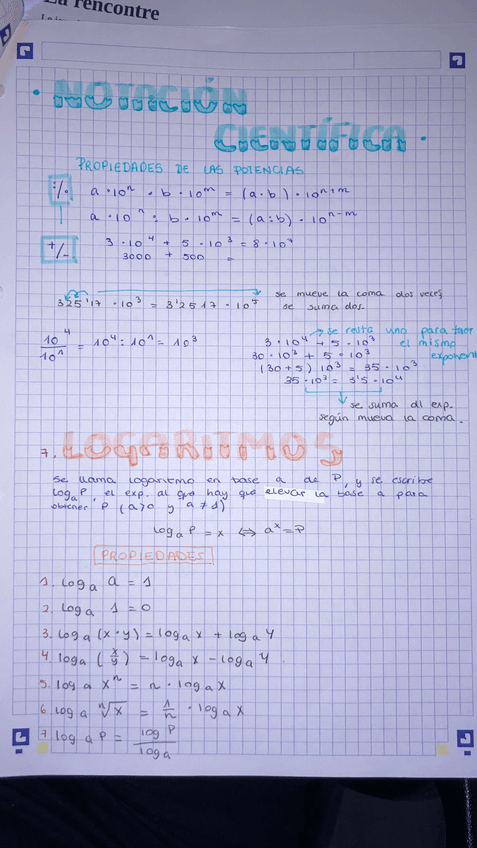 La rencontre
• NOTACIÓN
CIENTÍFICA •
PROPIEDADES DE LAS POTENCIAS
:/· a · 10ⁿ · b · 10ᵐ = (a · b) · 10ⁿ⁺ᵐ
a · 10ⁿ : b · 10ᵐ = (a : b) · 10ⁿ⁻ᵐ
+/- 3 · 10⁴ + 5 · 10³ = 8 · 10⁷
3000 + 500 =
325'17 · 10³ = 3'2517 · 10⁵ se mueve la coma dos veces, se suma dos.
10⁴/10¹ = 10⁴ : 10¹ = 10³
→ se resta uno para tener el mismo exponente
3 · 10⁴ + 5 · 10³
30 · 10³ + 5 · 10³
(30 + 5) 10³ = 35 · 10³
35 · 10³ = 3'5 · 10⁴
se suma al exp.
según mueva la coma.
7. LOGARITMOS
Se llama logaritmo en base a de P, y se escribe
logₐP, el exp. al que hay que elevar la base a para
obtener P (a>0 y a≠1)
logₐ P = x ⇔ aˣ = P
PROPIEDADES
1. logₐ a = 1
2. logₐ 1 = 0
3. logₐ (x · y) = logₐ x + logₐ y
4. logₐ (x/y) = logₐ x − logₐ y
5. logₐ xⁿ = n · logₐ x
6. logₐ ⁿ√x = 1/n · logₐ x
7. logₐ P = log P / log a